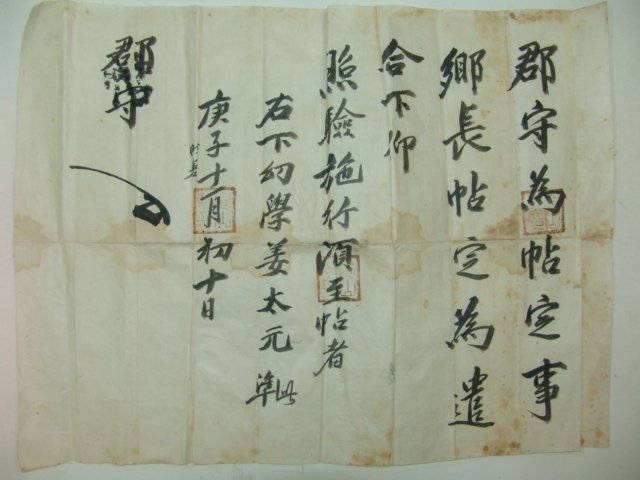 郡守為帖定事
鄉長帖定為遣
合下仰
照驗施行須至帖者
右下幼學姜太元 準此
庚子十一月初十日
郡守